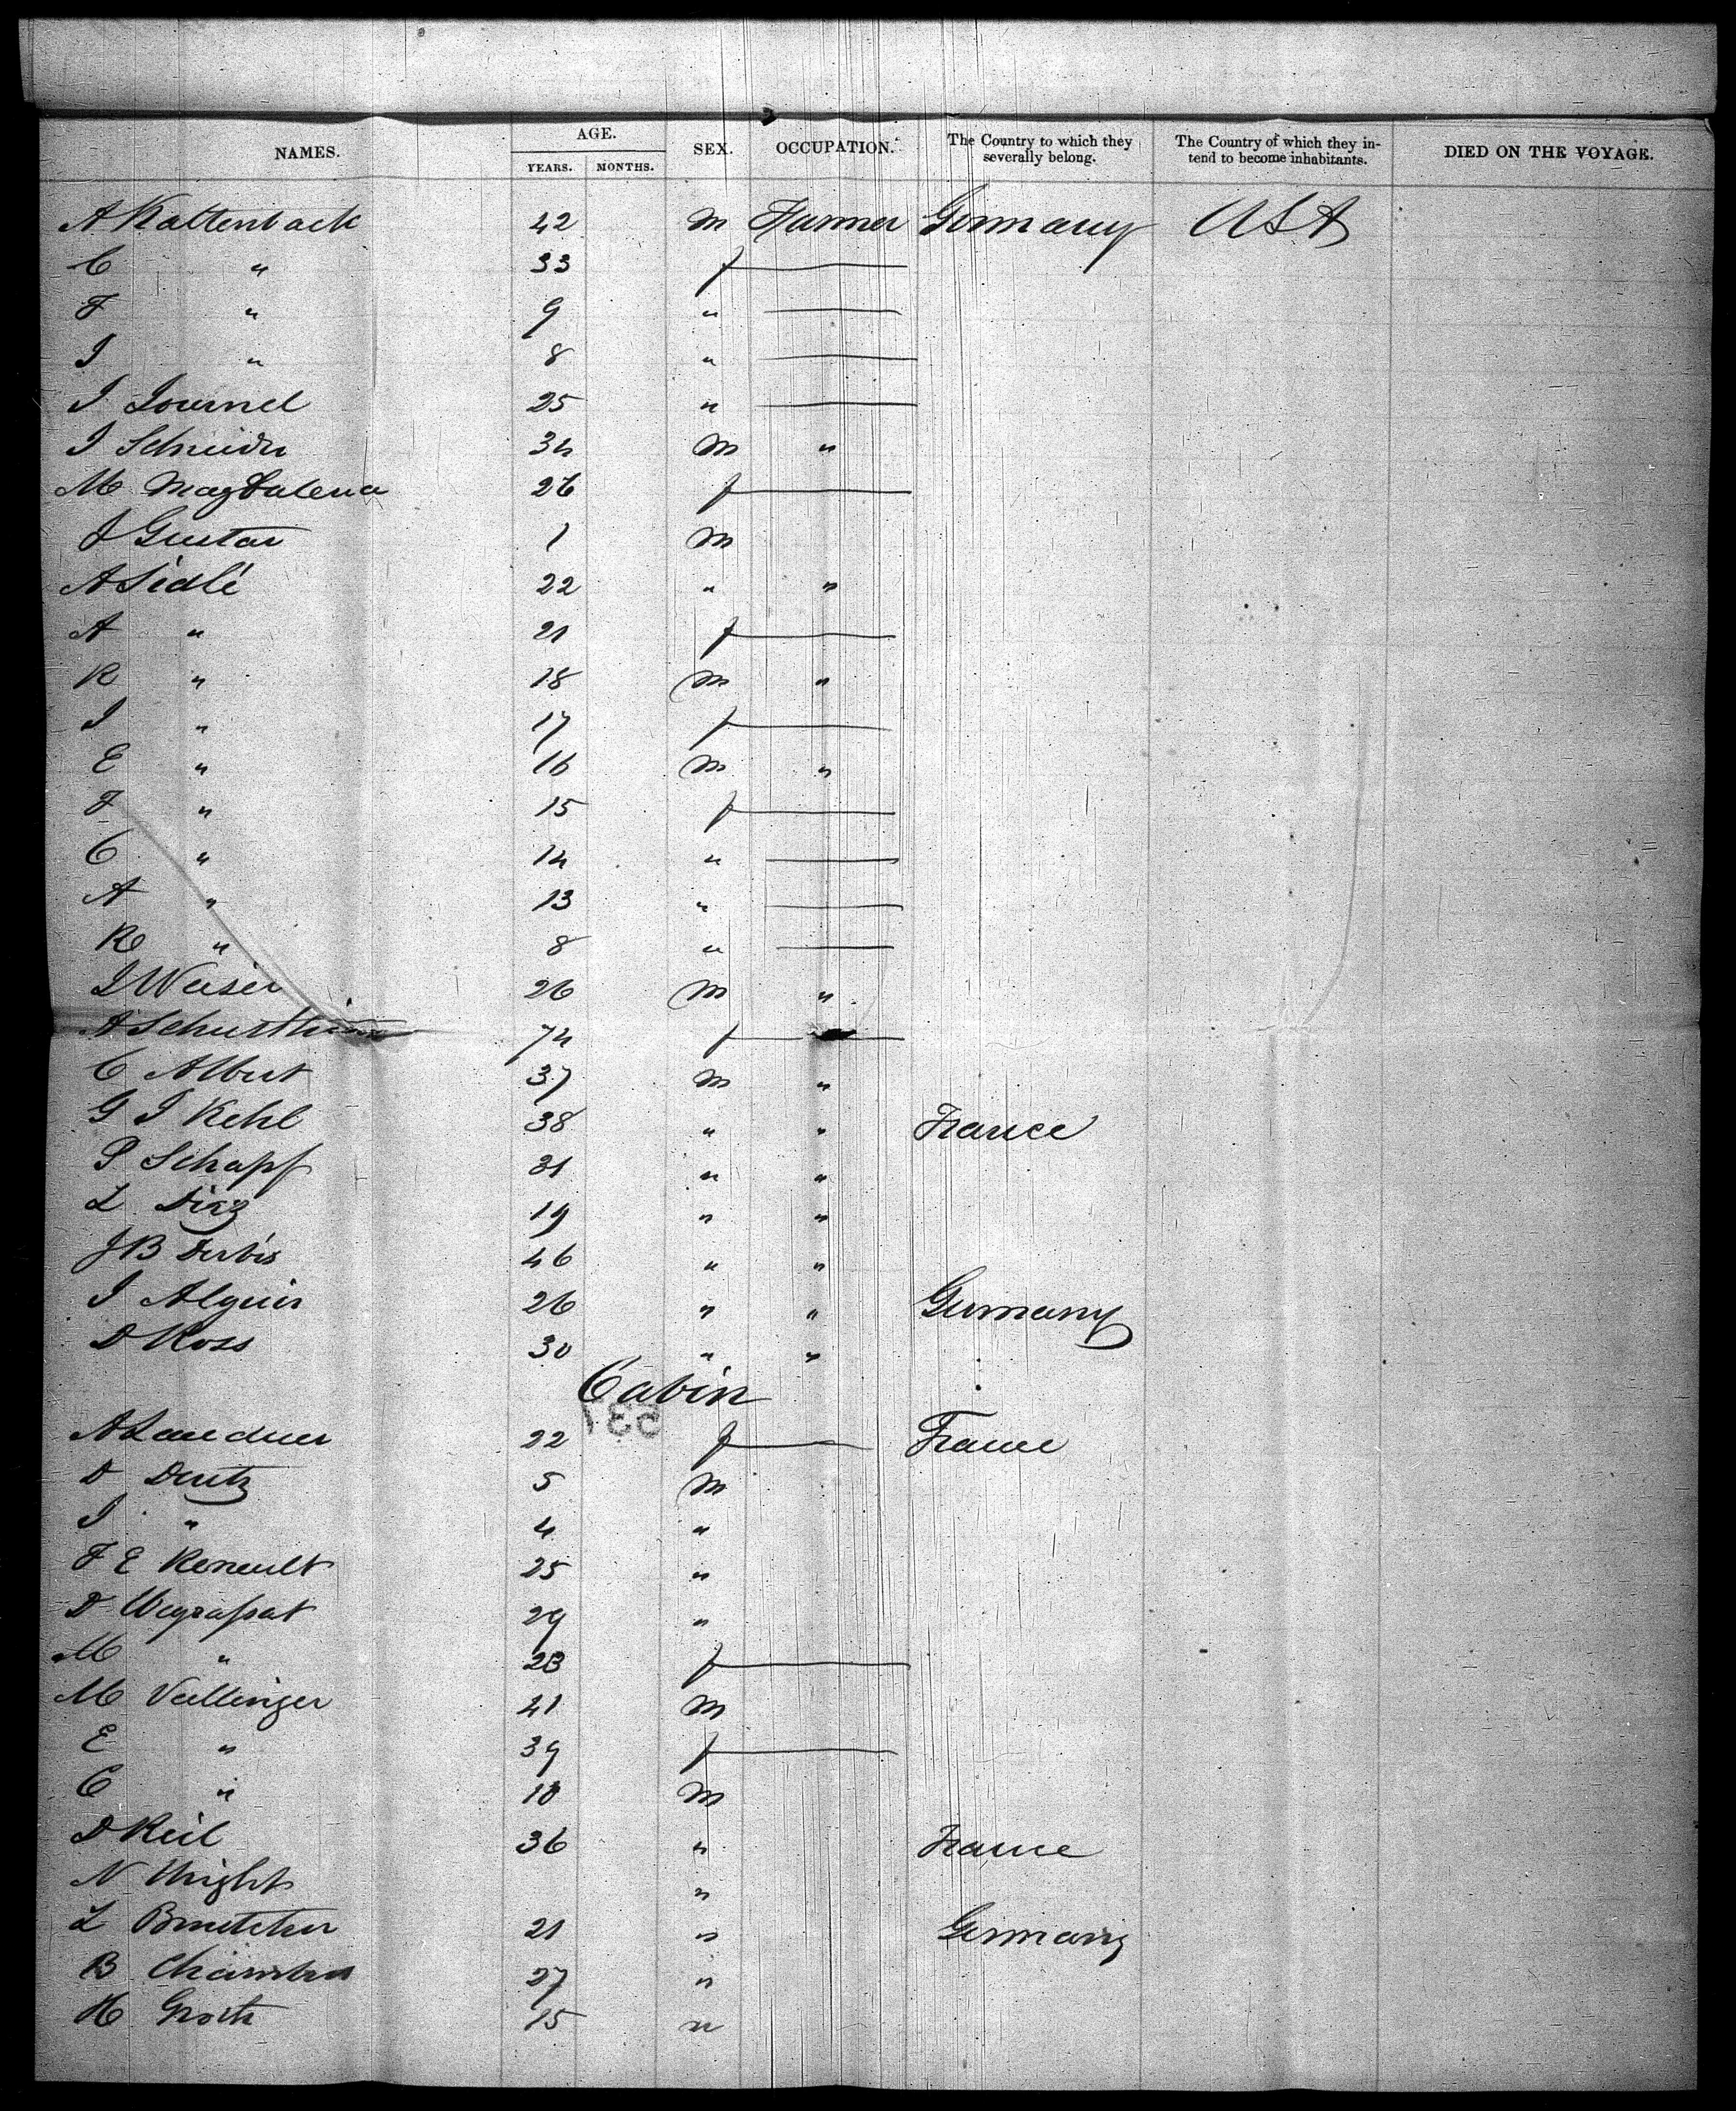 NAMES. AGE. YEARS. MONTHS. SEX. OCCUPATION. The Country to which they severally belong. The Country of which they intend to become inhabitants. DIED ON THE VOYAGE.
A Kaltenback 42 m Farmer Germany USA
C " 33 f
F " 9 "
I " 8 "
I Journel 25 "
I Schneider 34 m "
M Magdalena 26 f
J Gustav 1 m
A Siedlé 22 " "
A " 21 f
R " 18 m "
I " 17 f
E " 16 m "
F " 15 f
C " 14 "
A " 13 "
R " 8 "
I Weiser 26 m "
A 74 f
C Albert 37 m "
G I Kehl 38 " " France
P Schapf 31 " "
L Diaz 19 " "
J B Derbis 46 " "
I Alguir 26 " " Germany
D Koss 30 " "
Cabin
531
A 22 f France
D Deutz 5 m
I " 4 "
F E Renault 25 "
D 29 "
M " 23 f
M Vallinger 41 m
E " 39 f
C " 10 m
D Keil 36 " France
N Wright "
L 21 " Germany
B 27 "
H 15 "